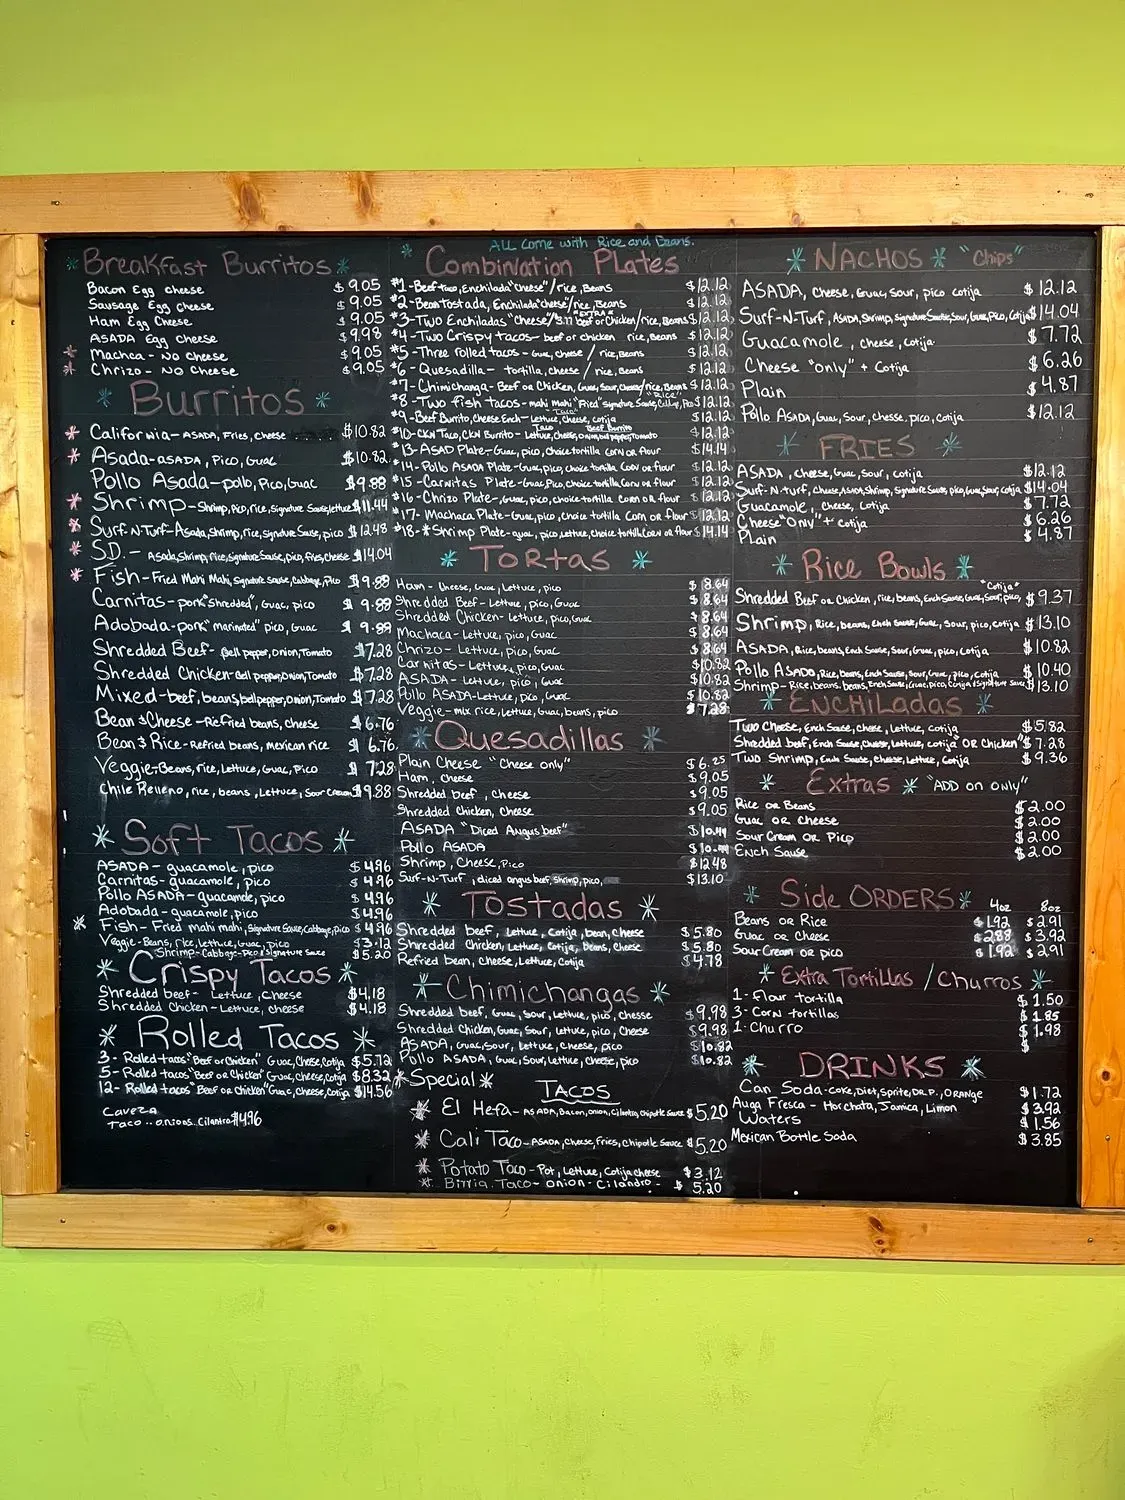 * Breakfast Burritos *
Bacon Egg cheese $9.05
Sausage Egg cheese $9.05
Ham Egg Cheese $9.05
ASADA Egg cheese $9.98
* Machca - No Cheese $9.05
* Chrizo - No Cheese $9.05
* Burritos *
* California - ASADA, Fries, Cheese $10.82
* Asada - ASADA, Pico, Guac $10.82
Pollo Asada - pollo, Pico, Guac $9.88
* Shrimp - Shrimp, Pico, rice, Signature Sause, lettuce $11.44
* Surf-N-Turf - Asada, Shrimp, rice, Signature Sause, pico $12.48
* S.D. - Asada, Shrimp, rice, Signature Sause, pico, Fries, cheese $14.04
* Fish - Fried Mahi Mahi, Signature Sause, Cabbage, Pico $9.88
Carnitas - pork "shredded", Guac, pico $9.88
Adobada - pork "marinated" pico, Guac $9.88
Shredded Beef - Bell pepper, Onion, Tomato $7.28
Shredded Chicken - Bell pepper, Onion, Tomato $7.28
Mixed - beef, beans, bellpepper, Onion, Tomato $7.28
Bean & Cheese - Refried beans, cheese $6.76
Bean & Rice - Refried beans, mexican rice $6.76
Veggie - Beans, rice, Lettuce, Guac, Pico $7.28
Chile Relleno, rice, beans, Lettuce, Sour Cream $9.88
* Soft Tacos *
ASADA - guacamole, pico $4.96
Carnitas - guacamole, pico $4.96
Pollo ASADA - guacamole, pico $4.96
Adobada - guacamole, pico $4.96
* Fish - Fried mahi mahi, Signature Sause, Cabbage, pico $4.96
Veggie - Beans, rice, Lettuce, Guac, pico $3.12
Shrimp - Cabbage - Pico, Signature Sauce $5.20
* Crispy Tacos *
Shredded beef - Lettuce, Cheese $4.18
Shredded Chicken - Lettuce, cheese $4.18
* Rolled Tacos *
3 - Rolled tacos "Beef or Chicken" Guac, Cheese, Cotija $5.72
5 - Rolled tacos "Beef or Chicken" Guac, cheese, Cotija $8.32
12 - Rolled tacos "Beef or Chicken" Guac, Cheese, Cotija $14.56
Caveza
Taco .. onions.. Cilantro $4.96
ALL Come with Rice and Beans.
* Combination Plates
#1 - Beef taco, Enchilada "Cheese" / rice, Beans $12.12
#2 - Bean tostada, Enchilada "cheese" / rice, Beans $12.12
#3 - Two Enchiladas "Cheese" / "EXTRA" $.77 beef or Chicken / rice, Beans $12.12
#4 - Two Crispy tacos - beef or chicken rice, Beans $12.12
#5 - Three rolled tacos - Guac, cheese / rice, Beans $12.12
#6 - Quesadilla - tortilla, cheese / rice, Beans $12.12
#7 - Chimichanga - Beef or Chicken, Guac, Sour, Cheese / rice, Beans $12.12
#8 - Two fish tacos - mahi mahi "Fried" signature Sause, Cabbage, Pico "Rice" $12.12
#9 - Beef Burrito, cheese Ench - Lettuce, Cheese, cotija $12.12
#10 - CKN Taco, CKN Burrito - Taco Lettuce, Cheese, Beef Burrito Onion, bell pepper, Tomato $12.12
#13 - ASAD Plate - Guac, pico, choice tortilla corn or flour $14.14
#14 - Pollo ASADA Plate - Guac, Pico, choice tortilla Corn or flour $12.12
#15 - Carnitas Plate - Guac, Pico, choice tortilla Corn or flour $12.12
#16 - Chrizo Plate - Guac, pico, choice tortilla corn or flour $12.12
#17 - Machaca Plate - Guac, pico, choice tortilla Corn or flour $12.12
#18 - * Shrimp Plate - guac, pico Lettuce, Choice tortilla Corn or flour $14.14
* Tortas *
Ham - Cheese, Guac, Lettuce, pico $8.64
Shredded Beef - Lettuce, Pico, Guac $8.64
Shredded Chicken - Lettuce, pico, Guac $8.64
Machaca - Lettuce, pico, Guac $8.64
Chrizo - Lettuce, pico, Guac $8.64
Carnitas - Lettuce, pico, Guac $10.82
ASADA - Lettuce, pico, Guac $10.82
Pollo ASADA - Lettuce, pico, Guac $10.82
Veggie - mix rice, Lettuce, Guac, beans, pico $7.28
* Quesadillas *
Plain Cheese "Cheese only" $6.25
Ham, cheese $9.05
Shredded beef, Cheese $9.05
Shredded Chicken, Cheese $9.05
ASADA "Diced Angus beef"
Pollo ASADA
Shrimp, Cheese, Pico $12.48
Surf-N-Turf, diced angus beef, shrimp, pico, $13.10
* Tostadas *
Shredded beef, Lettuce, Cotija, bean, Cheese $5.80
Shredded Chicken, Lettuce, Cotija, Beans, Cheese $5.80
Refried bean, Cheese, Lettuce, Cotija $4.78
* Chimichangas *
Shredded beef, Guac, Sour, Lettuce, pico, Chesse $9.98
Shredded Chicken, Guac, Sour, Lettuce, pico, Cheese $9.98
ASADA, Guac, Sour, Lettuce, Cheese, pico $10.82
Pollo ASADA, Guac, Sour, Lettuce, cheese, pico $10.82
* Special *
TACOS
* El Hefa - ASADA, Bacon, onion, Cilantro, Chipotle Sauce $5.20
* Cali Taco - ASADA, Cheese, Fries, Chipotle Sauce $5.20
* Potato Taco - Pot, Lettuce, Cotija cheese $3.12
* Birria. Taco - Onion - Cilandro - $5.20
* NACHOS * "Chips"
ASADA, Cheese, Guac, Sour, pico cotija $12.12
Surf-N-Turf, ASADA, Shrimp, Signature Sause, Sour, Guac, Pico, Cotija $14.04
Guacamole, cheese, cotija $7.72
Cheese "only" + Cotija $6.26
Plain $4.87
Pollo ASADA, Guac, Sour, Chesse, pico, Cotija $12.12
* FRIES *
ASADA, cheese, Guac, Sour, cotija $12.12
Surf-N-turf, Cheese, ASADA, Shrimp, Signature Sause, pico, Guac, Sour, cotija $14.04
Guacamole, cheese, Cotija $7.72
Cheese "Only" + cotija $6.26
Plain $4.87
* Rice Bowls *
Shredded Beef or Chicken, rice, beans, Ench Sause, Guac, Sour, pico, "Cotija" $9.37
Shrimp, Rice, beans, Ench Sause, Guac, Sour, pico, cotija $13.10
ASADA, Rice, beans, Ench Sause, Sour, Guac, pico, Cotija $10.82
Pollo ASADO, Rice, beans, Ench Sause, Sour, Guac, pico, cotija $10.40
Shrimp - Rice, beans, beans, Ench Sause, Guac, pico, Cotija & Signature Sauce $13.10
* ENCHILADAS *
Two Cheese, Ench Sause, Cheese, Lettuce, cotija $5.82
Shredded beef, Ench Sause, Cheese, Lettuce, cotija OR Chicken" $7.28
Two Shrimp, Ench Sause, Cheese, Lettuce, Cotija $9.36
* Extras * "ADD on ONLY"
Rice or Beans $2.00
Guac or Cheese $2.00
Sour Cream or Pico $2.00
Ench Sause $2.00
* Side ORDERS * 4oz 8oz
Beans or Rice $1.92 $2.91
Guac or Cheese $2.88 $3.92
Sour Cream or pico $1.92 $2.91
* Extra Tortillas / Churros *
1 - Flour tortilla $1.50
3 - Corn tortillas $1.85
1 - Churro $1.98
$
* DRINKS *
Can Soda - Coke, Diet, Sprite, DR.P., ORANGE $1.72
Auga Fresca - Horchata, Jamica, Limon $3.92
Waters $1.56
Mexican Bottle Soda $3.85